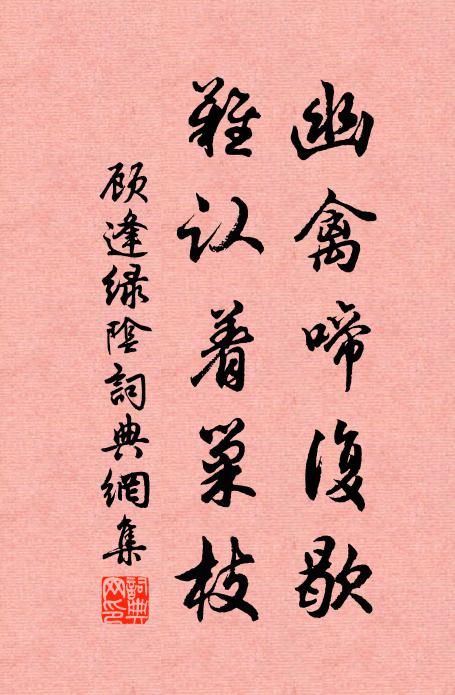 幽禽啼復歇
難认着巢枝
顾逢绿陰詞典網集
詞典網印